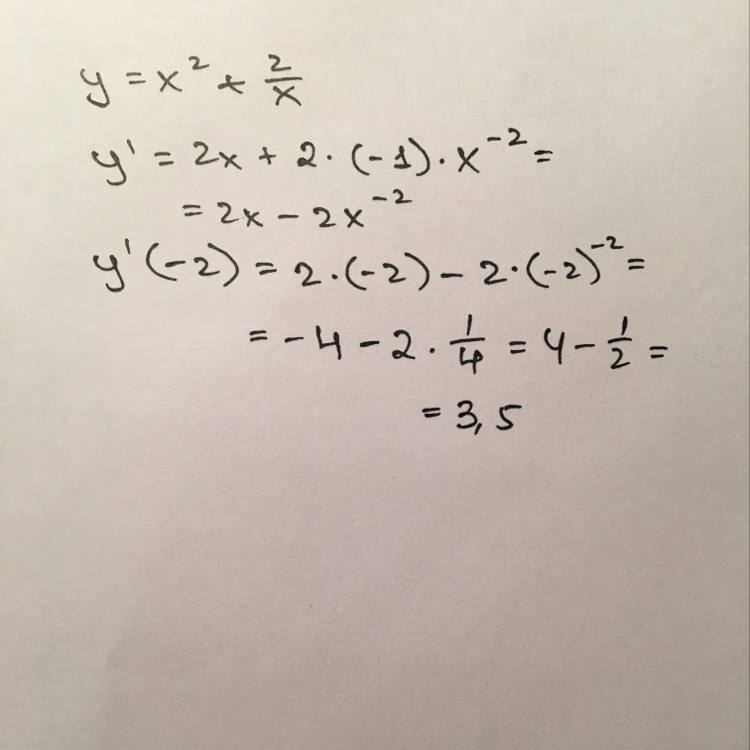 y = x² + 2/x
y' = 2x + 2 · (-1) · x⁻² =
= 2x - 2x⁻²
y'(-2) = 2 · (-2) - 2 · (-2)⁻² =
= -4 - 2 · 1/4 = 4 - 1/2 =
= 3,5